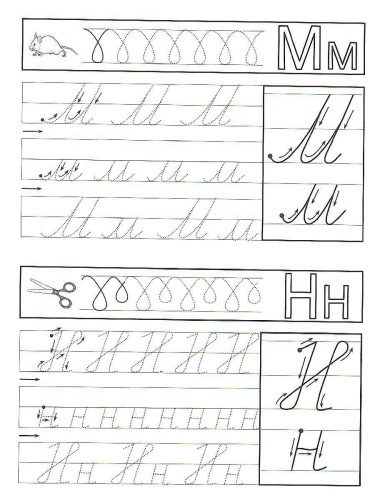 Мм
М М М
М
м м м м
м
М м М м
Нн
Н Н Н Н Н
Н
н н н н н н н н
н
Нн Нн Нн